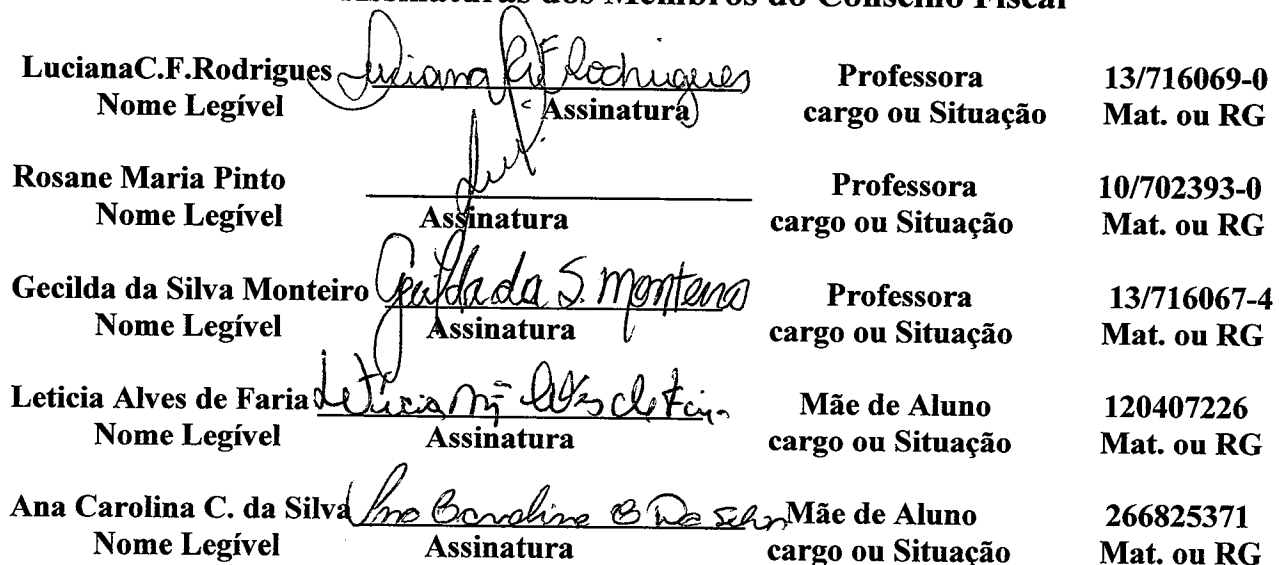 Assinaturas dos Membros do Conselho Fiscal
LucianaC.F.Rodrigues Luciana C F Rodrigues Professora 13/716069-0
Nome Legível Assinatura cargo ou Situação Mat. ou RG
Rosane Maria Pinto Professora 10/702393-0
Nome Legível Assinatura cargo ou Situação Mat. ou RG
Gecilda da Silva Monteiro Gecilda da S. Monteiro Professora 13/716067-4
Nome Legível Assinatura cargo ou Situação Mat. ou RG
Leticia Alves de Faria Leticia Mª Alves de Faria Mãe de Aluno 120407226
Nome Legível Assinatura cargo ou Situação Mat. ou RG
Ana Carolina C. da Silva Ana Carolina C Da Silva Mãe de Aluno 266825371
Nome Legível Assinatura cargo ou Situação Mat. ou RG